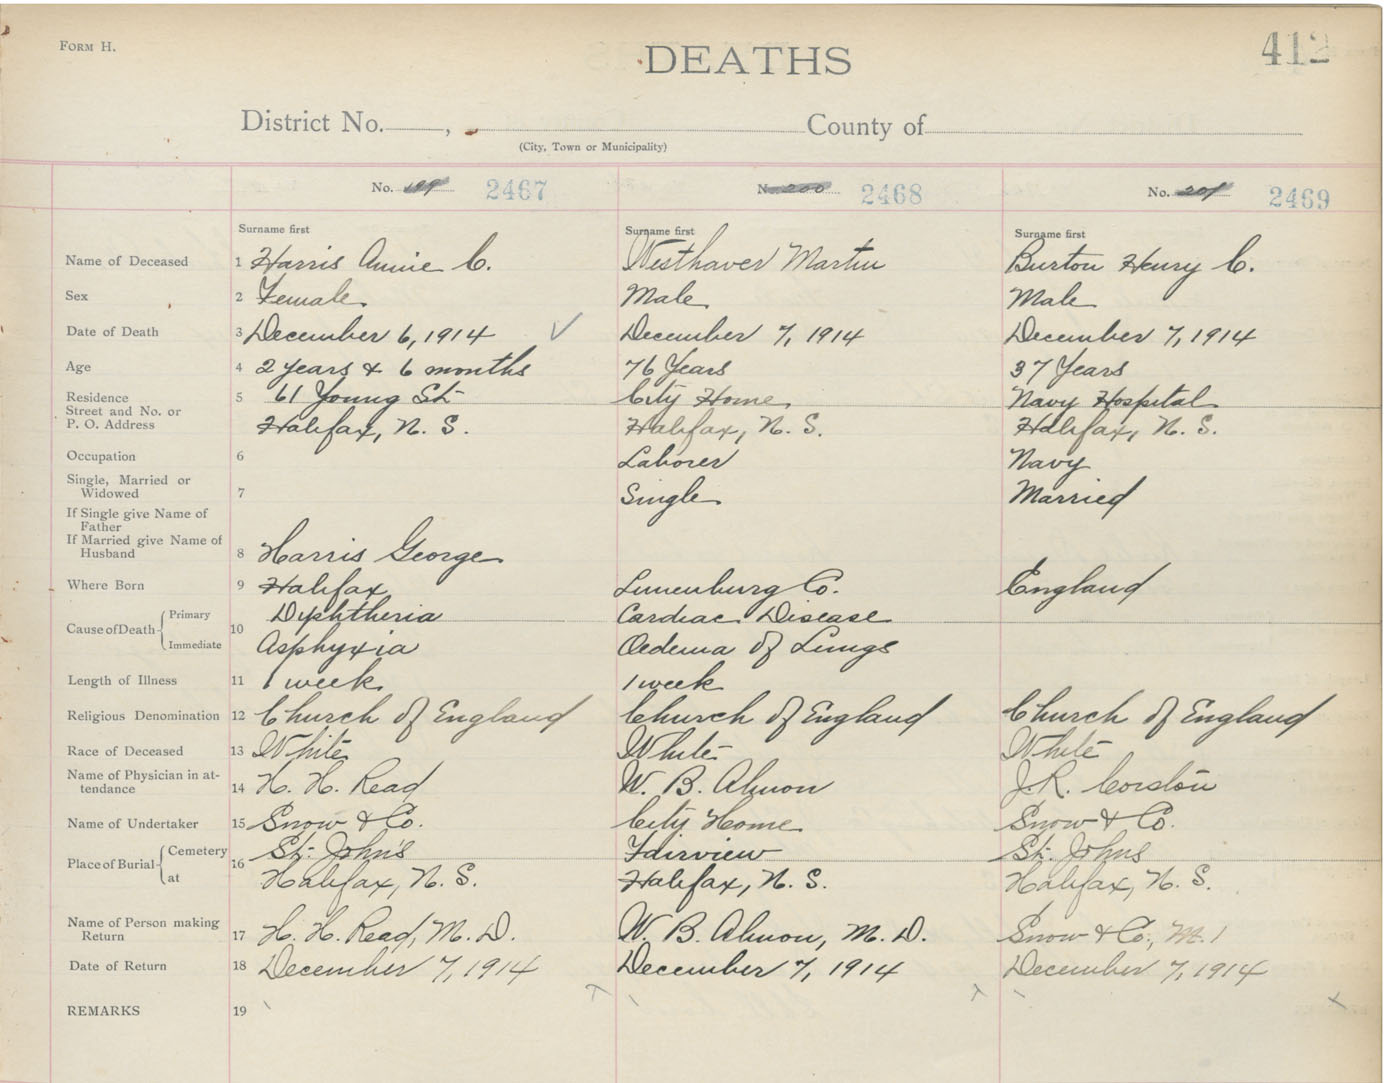 FORM H.
DEATHS
412
District No. , County of
(City, Town or Municipality)
No. 199 2467 No. 200 2468 No. 201 2469
Surname first Surname first Surname first
Name of Deceased 1 Harris Annie C. Westhaver Martin Burton Henry C.
Sex 2 Female Male Male
Date of Death 3 December 6, 1914 December 7, 1914 December 7, 1914
Age 4 2 years & 6 months 76 Years 37 Years
Residence 5 61 Young St. City Home Navy Hospital
Street and No. or
P. O. Address Halifax, N. S. Halifax, N. S. Halifax, N. S.
Occupation 6 Laborer Navy
Single, Married or
Widowed 7 Single Married
If Single give Name of
Father
If Married give Name of
Husband 8 Harris George
Where Born 9 Halifax Lunenburg Co. England
Cause of Death 10 Primary Dyphtheria Cardiac Disease
Immediate Asphyxia Oedema of Lungs
Length of Illness 11 1 week 1 week
Religious Denomination 12 Church of England Church of England Church of England
Race of Deceased 13 White White White
Name of Physician in at-
tendance 14 H. H. Read W. B. Almon J. R. Corston
Name of Undertaker 15 Snow & Co. City Home Snow & Co.
Place of Burial 16 Cemetery St. John's Fairview St. Johns
at Halifax, N. S. Halifax, N. S. Halifax, N. S.
Name of Person making
Return 17 H. H. Read, M. D. W. B. Almon, M. D. Snow & Co.,
Date of Return 18 December 7, 1914 December 7, 1914 December 7, 1914
REMARKS 19